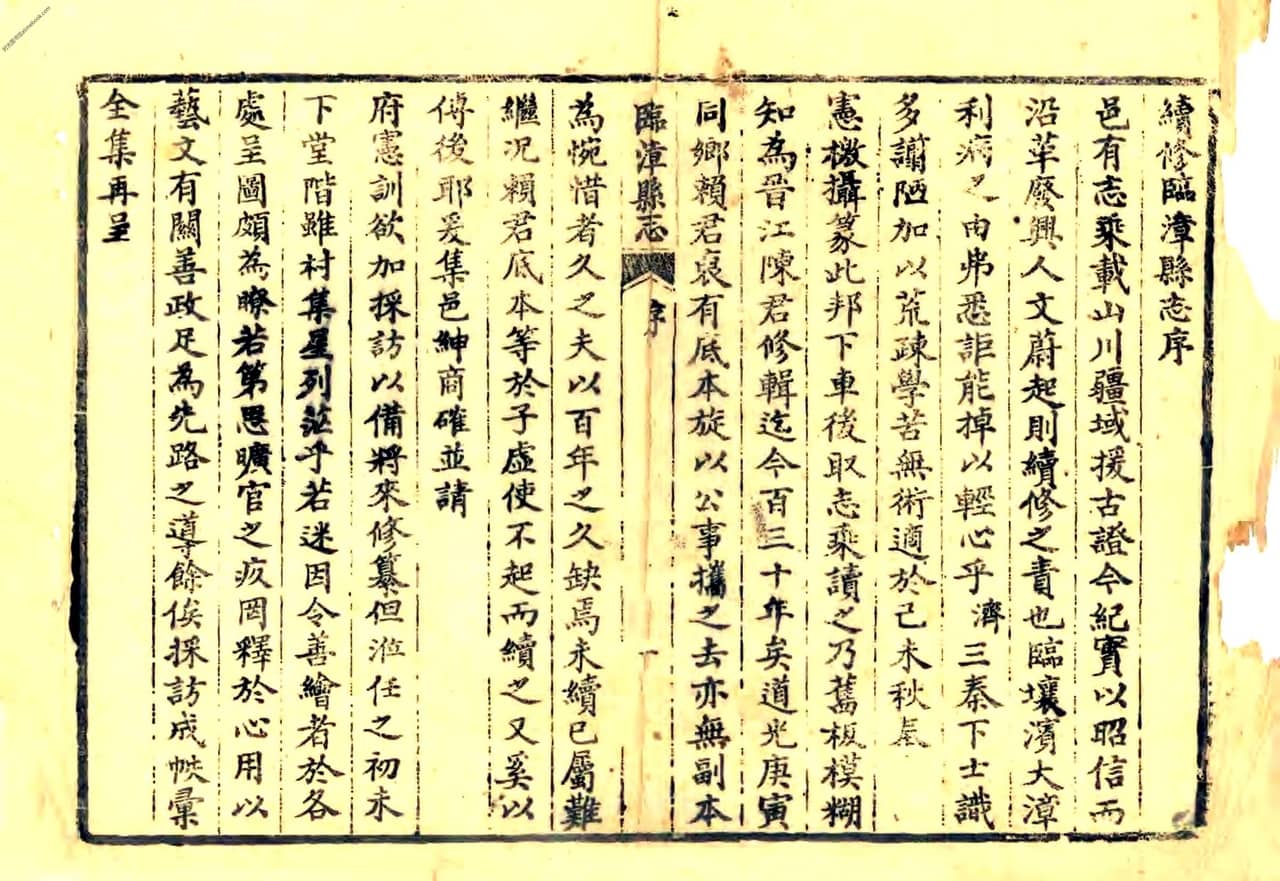 續修臨漳縣志序
邑有志乘載山川疆域援古證今紀實以昭信而
沿革廢興人文蔚起則續修之責也臨壤濱大漳
利病之由弗悉詎能掉以輕心乎濟三秦下士識
多謭陋加以荒疎學苦無術適於己未秋
憲檄攝篆此邦下車後取志乘讀之乃舊板模糊
知為晋江陳君修輯迄今百三十年矣道光庚寅
同鄉賴君裒有底本旋以公事攜之去亦無副本
臨漳縣志 序 一
為惋惜者久之夫以百年之久缺焉未續已屬難
繼況賴君底本等於子虛使不起而續之又奚以
傳後耶爰集邑紳商確並請
府憲訓欲加採訪以備將來修纂但涖任之初未
下堂階雖村集星列茫乎若迷因令善繪者於各
處呈圖頗為瞭若第思曠官之疚罔釋於心用以
藝文有關善政足為先路之導餘俟採訪成帙彙
全集再呈